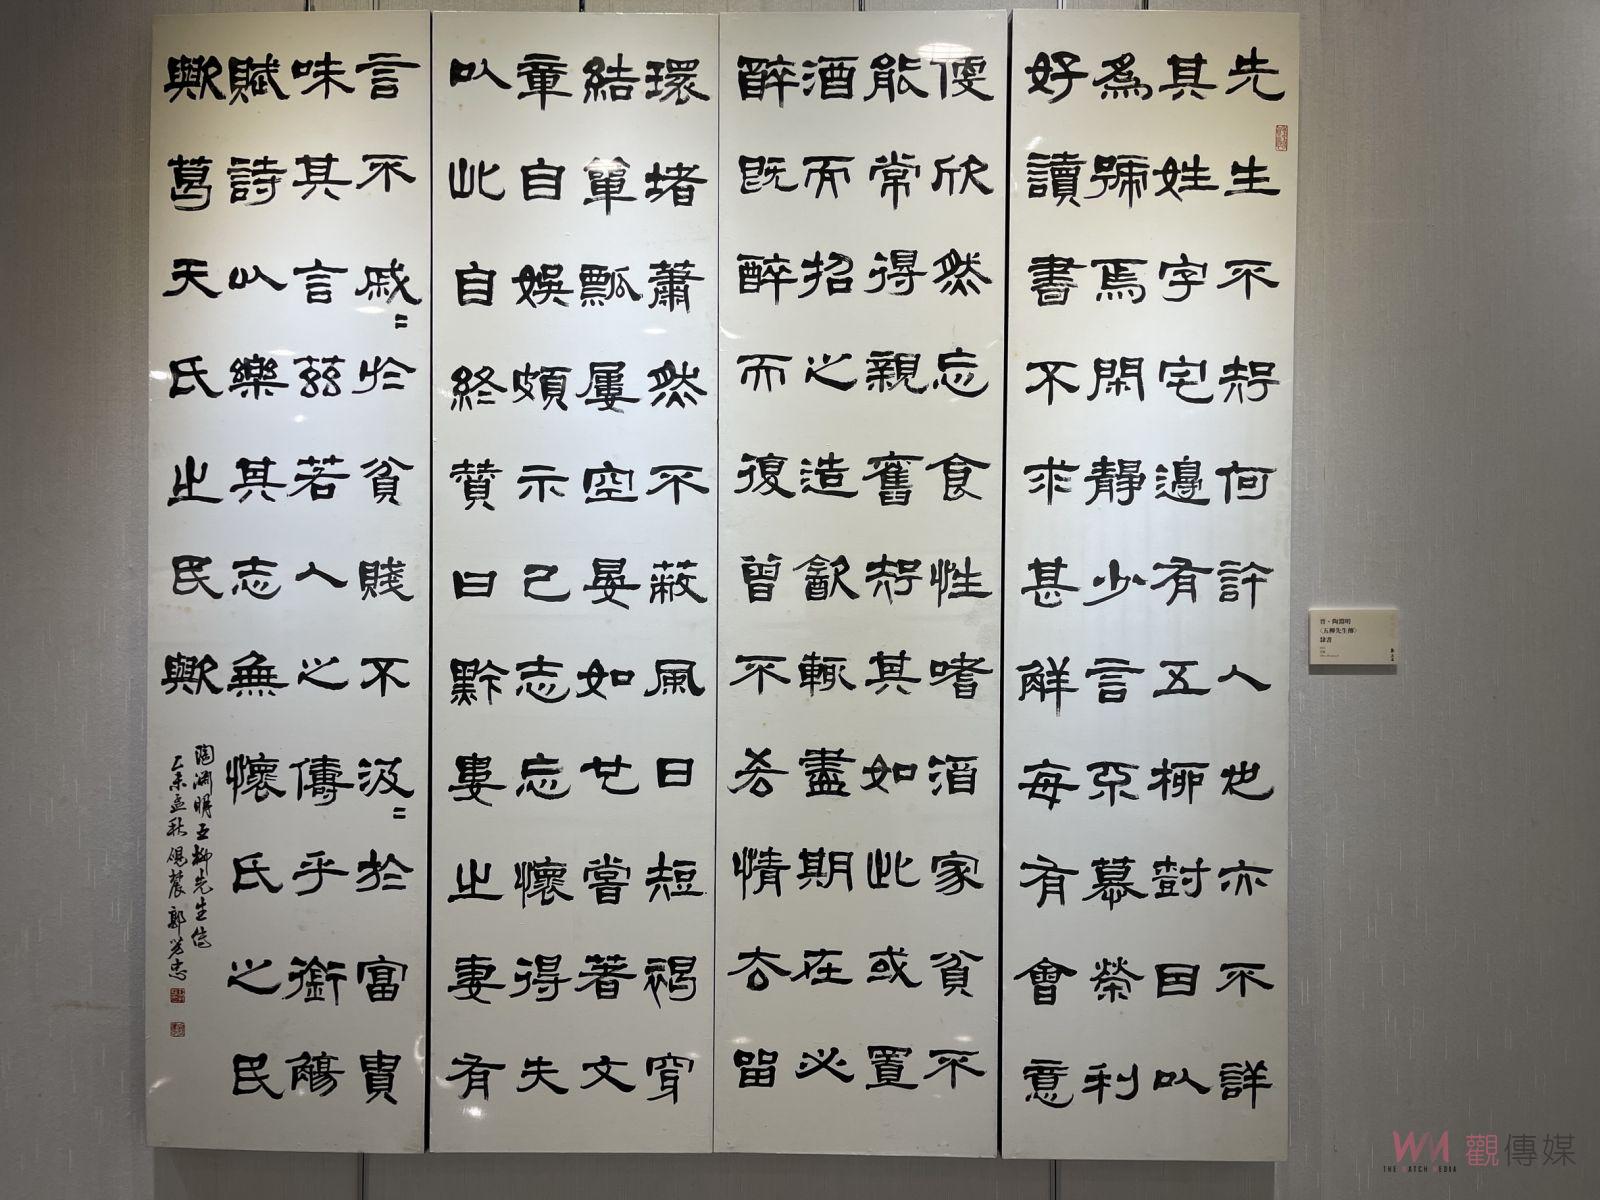 先生不知何許人也亦不詳
其姓字宅邊有五柳樹因以
為號焉閑靜少言不慕榮利
好讀書不求甚解每有會意
便欣然忘食性嗜酒家貧不
能常得親舊知其如此或置
酒而招之造飲輒盡期在必
醉既醉而復曾不吝情去留
環堵蕭然不蔽風日短褐穿
結簞瓢屢空晏如也嘗著文
章自娛頗示己志忘懷得失
以此自終贊曰黔婁之妻有
言不戚〻於貧賤不汲〻於富貴
味其言茲若人之儔乎銜觴
賦詩以樂其志無懷氏之民
歟葛天氏之民歟
陶淵明五柳先生傳
乙未孟秋硯農郭芳忠
晉・陶淵明
〈五柳先生傳〉
隸書
WM 觀傳媒
THE WATCH MEDIA